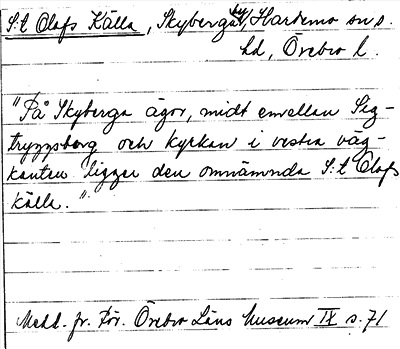 S:t Olofs Källa, Skyberga by, Hardemo sn o.
hd, Örebro l.
"På Skyberga ägor, midt emellan Sig-
tryggsborg och kyrkan i vestra väg-
kanten ligger den omnämnda S:t Olofs
källa."
Medd. fr. För. Örebro Läns Museum IX s. 71